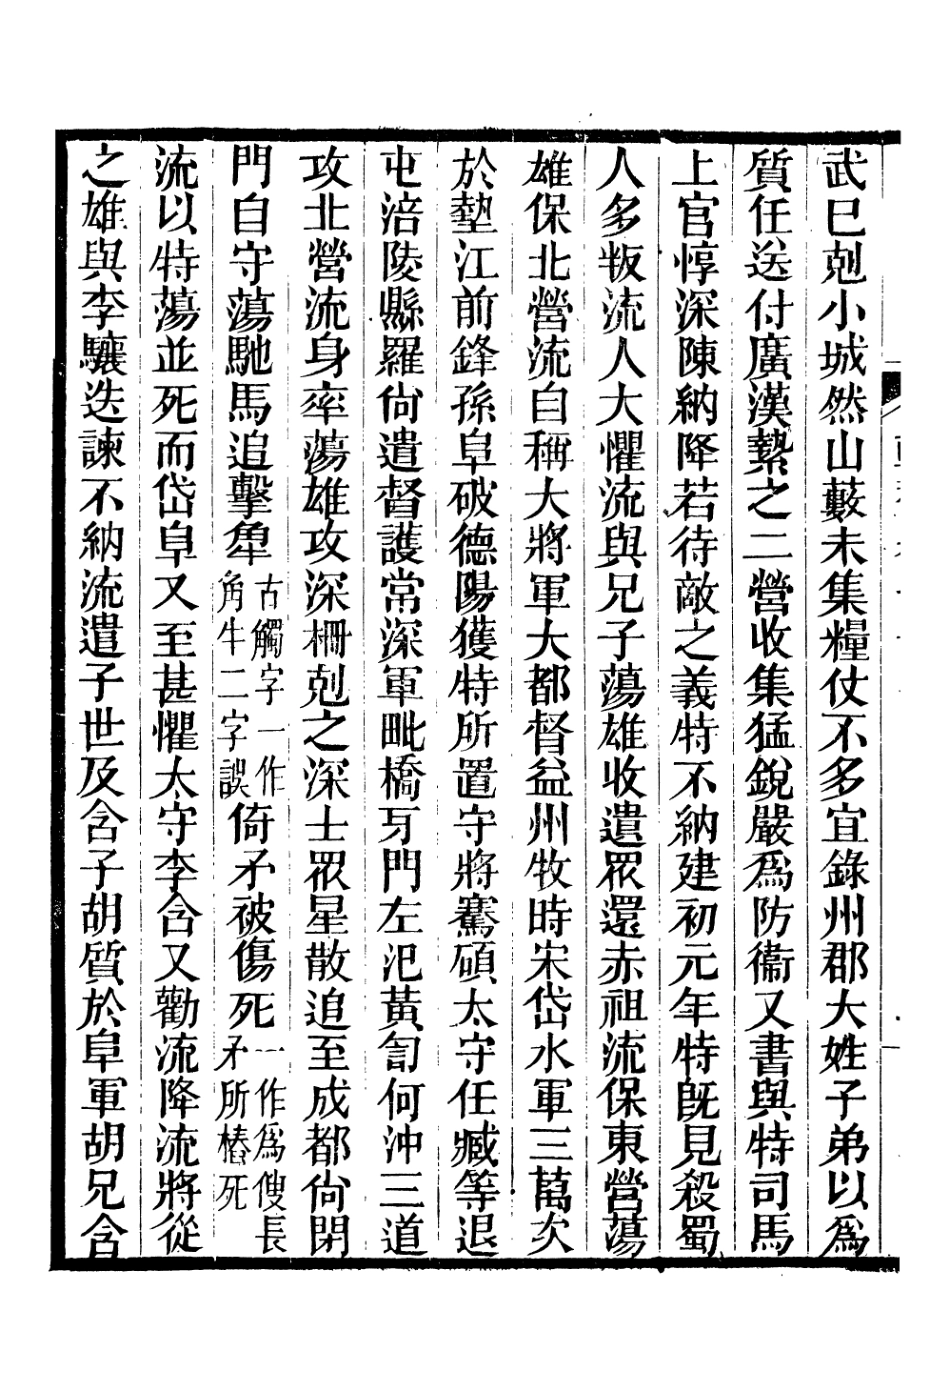 武已剋小城然山藪未集糧仗不多宜錄州郡大姓子弟以爲
質任送付廣漢縶之二營收集猛銳嚴爲防衞又書與特司馬
上官惇深陳納降若待敵之義特不納建初元年特旣見殺蜀
人多叛流人大懼流與兄子蕩雄收遺眾還赤祖流保東營蕩
雄保北營流自稱大將軍大都督益州牧時宋岱水軍三萬次
於墊江前鋒孫阜破德陽獲特所置守將騫碩太守任臧等退
屯涪陵縣羅尙遣督護常深軍毗橋牙門左氾黃訇何沖三道
攻北營流身率蕩雄攻深柵剋之深士眾星散追至成都尙閉
門自守蕩馳馬追擊𧢲
古觸字一作
角牛二字誤
倚矛被傷死
一作爲傁長
矛所樁死
流以特蕩並死而岱阜又至甚懼太守李含又勸流降流將從
之雄與李驤迭諫不納流遣子世及含子胡質於阜軍胡兄含